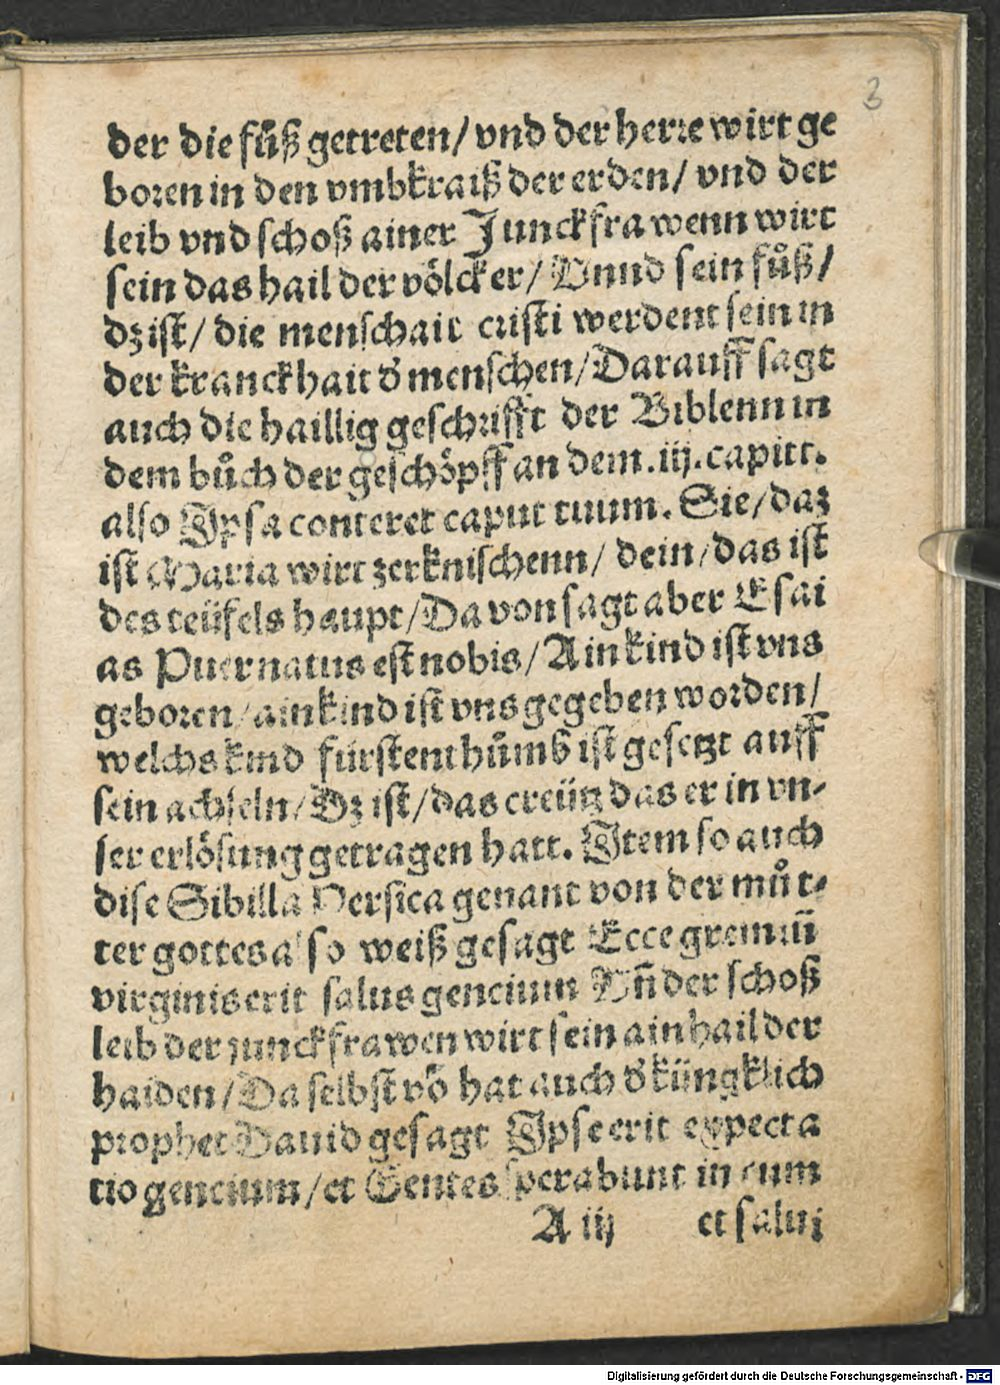 3
der die fůß getreten/ vnd der herre wirt ge
boren in den vmbkraiß der erden/ vnd der
leib vnd schoß ainer Junckfrawenn wirt
sein das hail der völcker/ Vnnd sein fůß/
dz ist/ die menschait cristi werdent sein in
der kranckhait d' menschen/ Darauff sagt
auch die haillig geschrifft der Biblenn in
dem bůch der geschöpff an dem .iij. capitt.
also Ipsa conteret caput tuum. Sie/ daz
ist Maria wirt zerknischenn/ dein/ das ist
des teüfels haupt/ Da von sagt aber Esai
as Puer natus est nobis/ Ain kind ist vns
geboren/ ain kind ist vns gegeben worden/
welchs kind fürstenthůmß ist gesetzt auff
sein achseln/ Dz ist/ das creütz das er in vn-
ser erlösung getragen hatt. Item so auch
dise Sibilla Persica genant von der můt-
ter gottes also weiß gesagt Ecce gremiū
virginis erit salus gencium Vn̄ der schoß
leib der junckfrawen wirt sein ain hail der
haiden/ Da selbst vō hat auch d' küngklich
prophet Dauid gesagt Ipse erit expecta
tio gencium/ et Gentes sperabunt in eum
A iij et salui
Digitalisierung gefördert durch die Deutsche Forschungsgemeinschaft - DFG